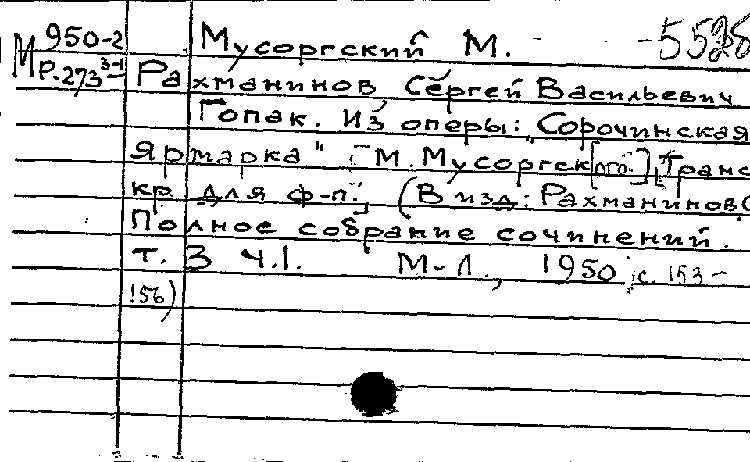 М 950-2 Мусоргский М. -5528
Р-273 3-1 Рахманинов Сергей Васильевич
Гопак. Из оперы: „Сорочинская
Ярмарка" М. Мусоргск[ого], [Транс
кр. для ф-п.] (В изд: Рахманинов С
Полное собрание сочинений.
т. 3 ч.1. М-Л., 1950, с. 153-
156)